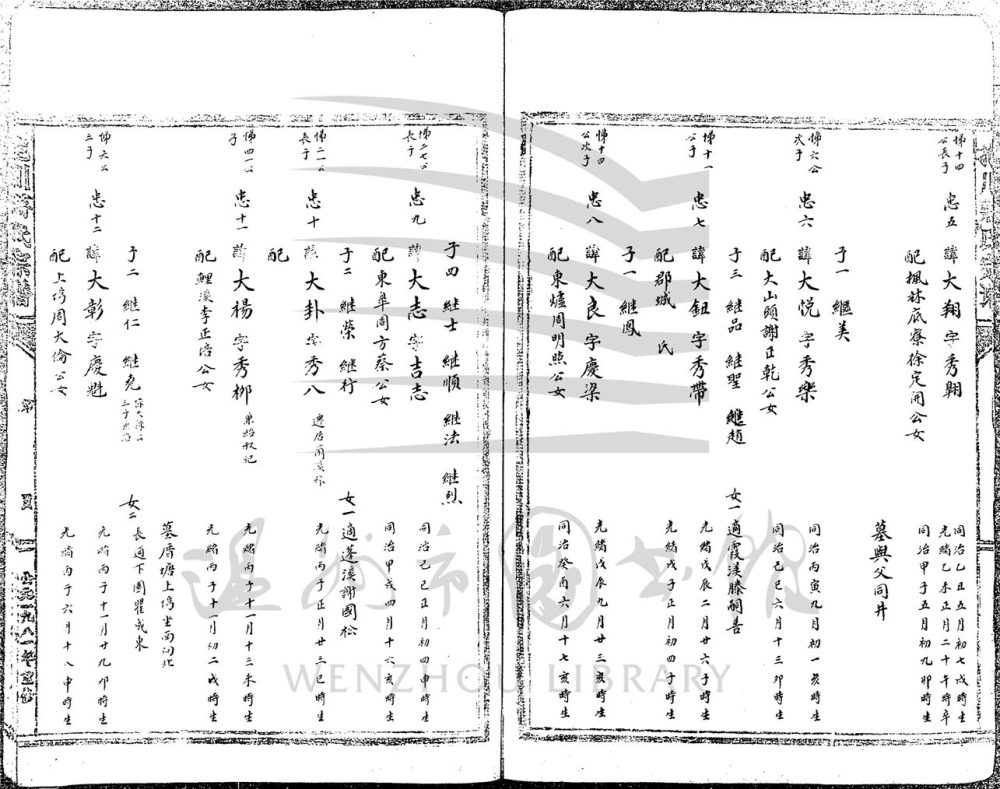 悌十四
公長子
忠五 諱大翔字秀翺
同治乙丑五月初七戌時生
光緒乙未正月二十午時卒
配楓林底寮徐定開公女
同治甲子五月初九卯時生
墓與父同井
子一 繼美
悌六公
次子
忠六 諱大悅字秀樂
同治丙寅九月初一亥時生
配大山頭謝正乾公女
同治己巳六月十三卯時生
子三 繼品 繼聖 繼趙
女一適霞溪滕嗣善
悌十一
公子
忠七 諱大鈕字秀帶
光緒戊辰二月廿六子時生
配郡城 氏
光緒戊子正月初四子時生
子一 繼鳳
悌十四
公次子
忠八 諱大良字慶梁
光緒戊辰九月廿三亥時生
配東爐周明照公女
同治癸酉六月十七亥時生
子四 繼士 繼順 繼法 繼烈
悌二七公
長子
忠九 諱大志字吉志
同治己巳正月初四申時生
配東皋周方蔡公女
同治甲戌四月十六亥時生
子二 繼榮 繼行
女一適蓬溪謝國松
悌二一公
長子
忠十 諱大卦字秀八
光緒丙子正月廿三巳時生
配
悌四一公
子
忠十一 諱大楊字秀柳
光緒丙子十一月十三未時生
配鯉溪李正浩公女
光緒丙子十月初二戌時生
墓厝塘上塆坐南向北
子二 繼仁 繼堯
女二
長適下園瞿岩東
悌六公
三子
忠十二 諱大彰字慶魁
光緒丙子十一月廿九卯時生
配上塆周大倫公女
光緒丙子六月十八申時生
溫州市圖書館
WENZHOU LIBRARY